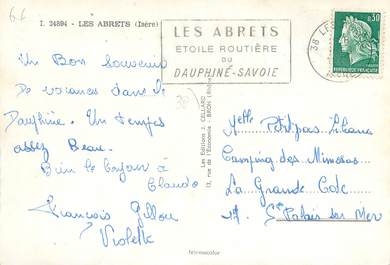 I. 24894 - LES ABRETS (Isère)
LES ABRETS
ETOILE ROUTIÈRE
DU
DAUPHINÉ-SAVOIE
38 LES
0,30
REPUBLIQUE FRANÇAISE
Un Bon Souvenir
de vacances dans le
Dauphiné. Un temps
assez Beau.
Bien le bonjour à
Claudo
François Gillou
Violette
Les Editions J. CELLARD
12, rue de l'Economie - BRON (Rhône)
Melle Petitpas Liliane
Camping des Mimosas
La Grande Cote
17. St Palais sur Mer